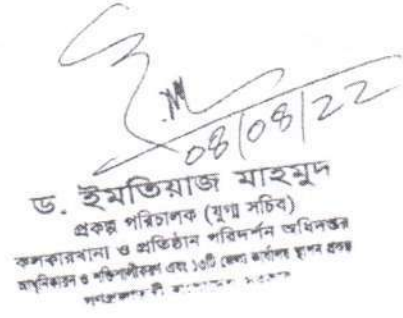 08/08/22
ড. ইমতিয়াজ মাহমুদ
প্রকল্প পরিচালক (যুগ্ম সচিব)
কলকারখানা ও প্রতিষ্ঠান পরিদর্শন অধিদপ্তর
আধুনিকায়ন ও শক্তিশালীকরণ এবং ১৩টি জেলা কার্যালয় স্থাপন প্রকল্প